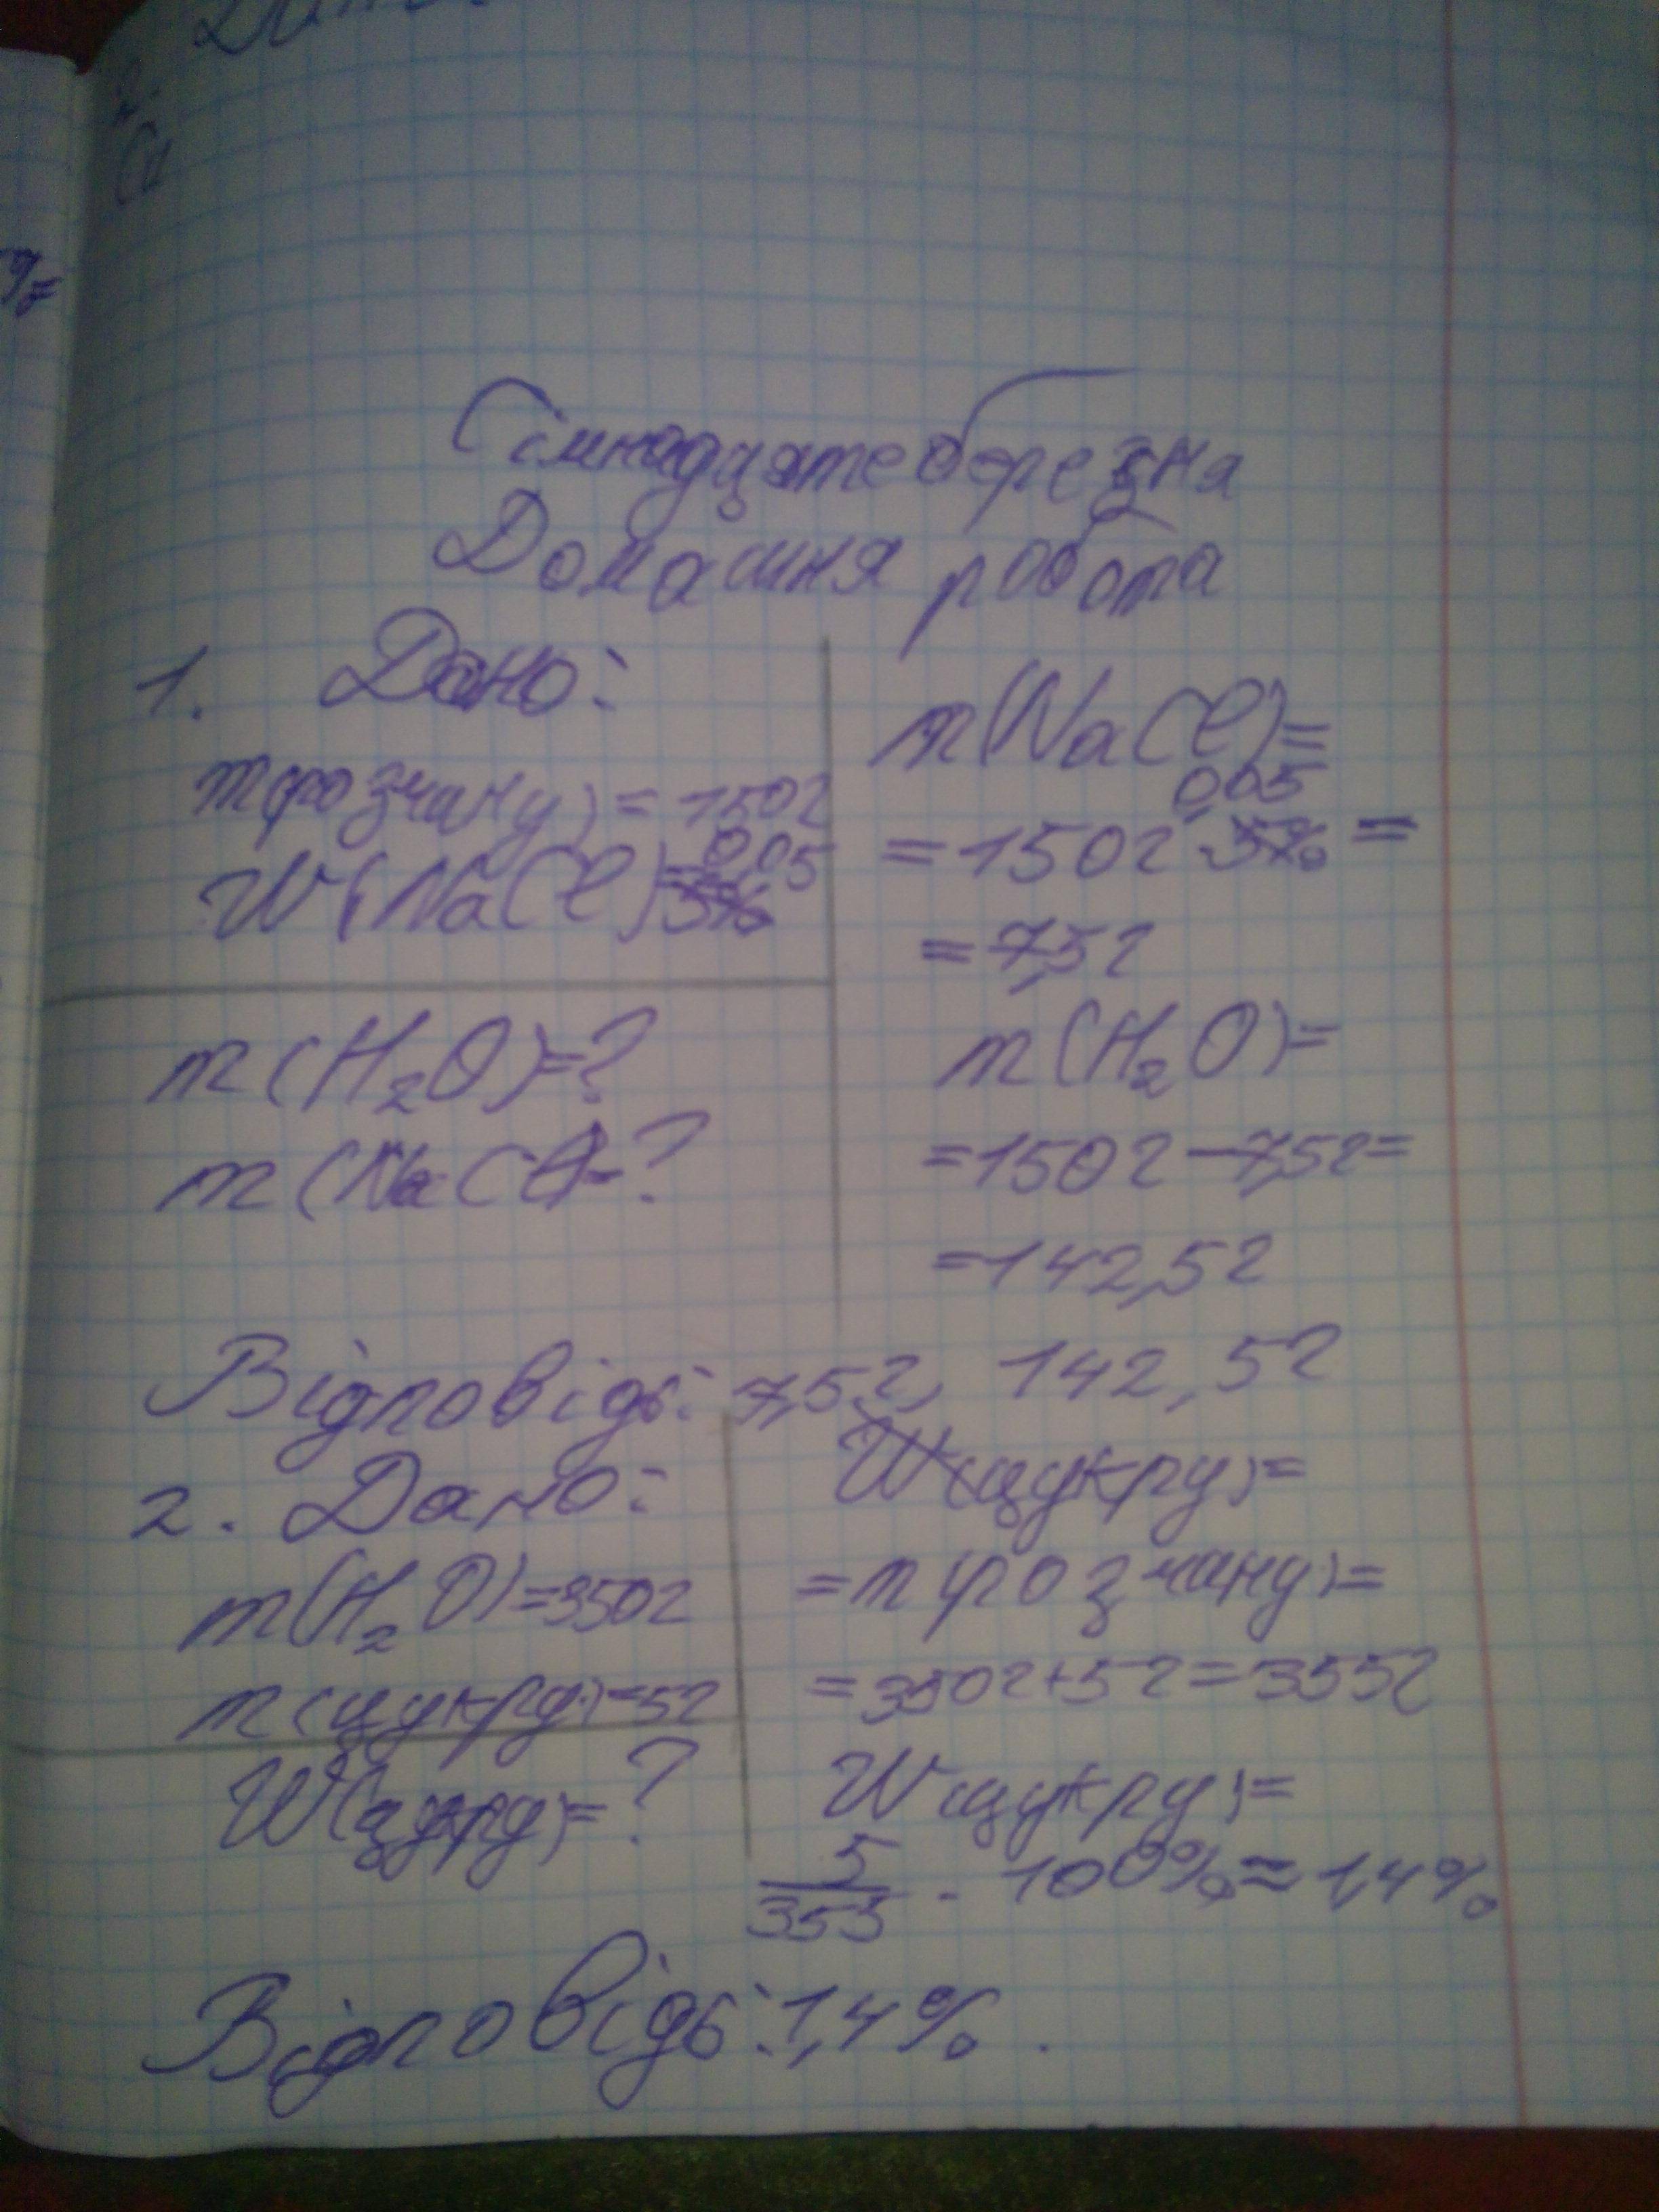 Сімнадцяте березня
Домашня робота
1. Дано:
m(розчину) = 150г
W(NaCl)=0,05
m(H₂O)=?
m(NaCl)-?
m(NaCl)=
=150г·0,05=
=7,5г
m(H₂O)=
=150г-7,5г=
=142,5г
Відповідь: 7,5г, 142,5г
2. Дано:
m(H₂O)=350г
m(цукру)=5г
W(цукру)=?
W(цукру)=
=m(розчину)=
=350г+5г=355г
W(цукру)=
5/355 · 100%≈1,4%
Відповідь: 1,4%.